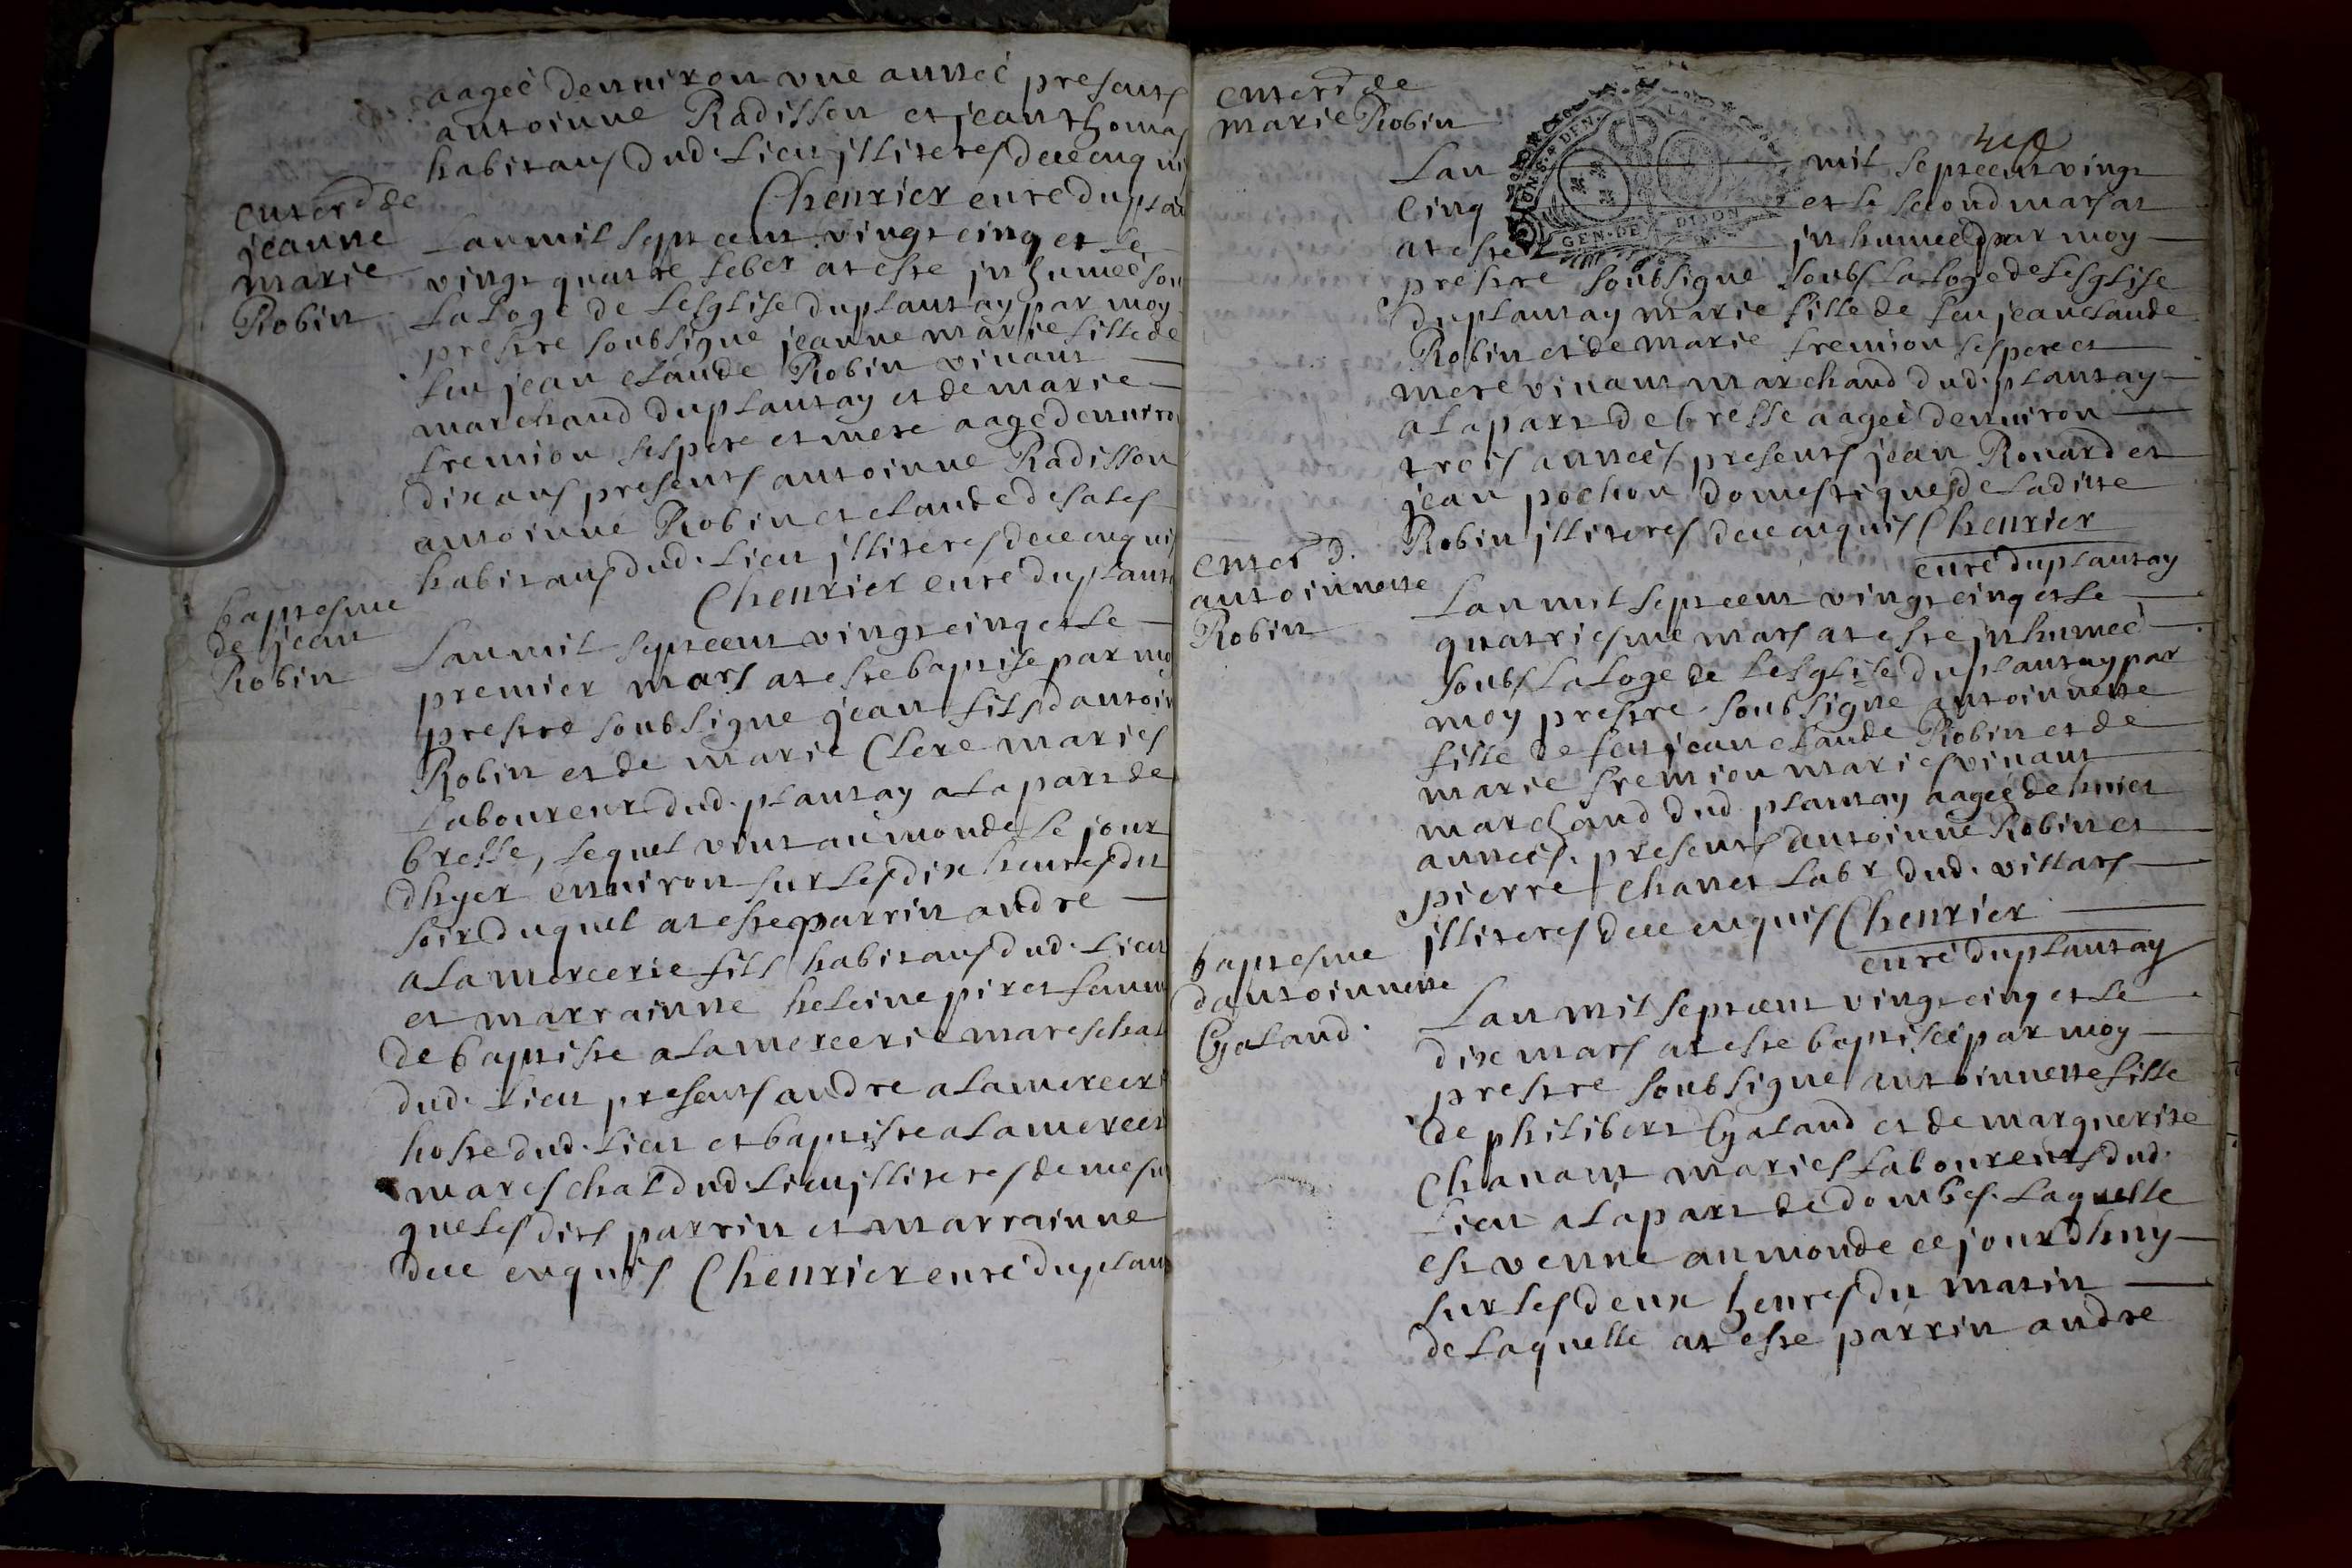 aagée denuiron vne année presents
antoinne Radisson et jean thomas
habitans dud. Lieu jlliteres dece enquis
Chenrier curé du plan
enterrd de
jeanne
marie
Robin
Lan mil sept cent vingt cinq et le
vingt quattre feber at este jnhumée sou
La Loge de Lesglise du plantay par moy
prestre soubsigne jeanne marie fille de
feu jean claude Robin viuant
marchand du plantay et de marie
fremion ses pere et mere aagé denuiron
dix ans presents antoinne Radisson
antoinne Robin et claude desales
habitans dud. Lieu jlliteres dece enquis
Chenrier curé du planta
baptesme
de jean
Robin
Lan mil sept cent vingt cinq et le
premier mars at este baptise par mo
prestre soubsigne jean fils dantoin
Robin et de marie Clere maries
Laboureur dud. plantay a la part de
bresse, lequel vint au monde le jour
dhyer enuiron sur les dix heures du
soir duquel at este parrin andre
alamercerie fils habitans dud. Lieu
et marrainne heleine piret femm
de baptiste alamercerie mareschal
dud. Lieu presents andre alamerceri
hoste dud. Lieu et baptiste alamercer
mareschal dud. Lieu jlliteres de mesm
que les dits parrin et marrainne
dece enquis Chenrier curé du plan
enterd de
marie Robin
GEN. DE DIJON
Lan mil sept cent vingt
cinq et le second mars at
at este jnhumeé par moy
prestre soubsigne soubs la loge de Lesglise
du plantay marie fille de feu jean claude
Robin et de marie fremion ses pere et
mere viuant marchand dud. plantay
a la part de bresse aageé denuiron
trois anneés presents jean Rouard et
jean pochon domestiques de laditte
Robin jlliteres dece enquis Chenrier
curé du plantay
enter d.
antoinnette
Robin
Lan mil sept cent vingt cinq et le
quatriesme mars at este jnhumeé
soubs la Loge de Lesglise du plantay par
moy prestre soubsigne antoinnette
fille de feu jean claude Robin et de
marie fremion maries viuant
marchand dud plantay aageé de huict
anneés. presents antoinne Robin et
pierre chanet Labr dud. villars
jlliteres dece enquis Chenrier
curé du plantay
baptesme
dantoinnette
Galand.
Lan mil sept cent vingt cinq et le
dix mars at este baptiseé par moy
prestre soubsigne antoinnette fille
de philibert Galand et de marguerite
Chanant maries Laboureurs dud.
Lieu a la part de dombes. Laquelle
est venue au monde ce jourdhuy
sur les deux heures du matin
de Laquelle at este parrin andre